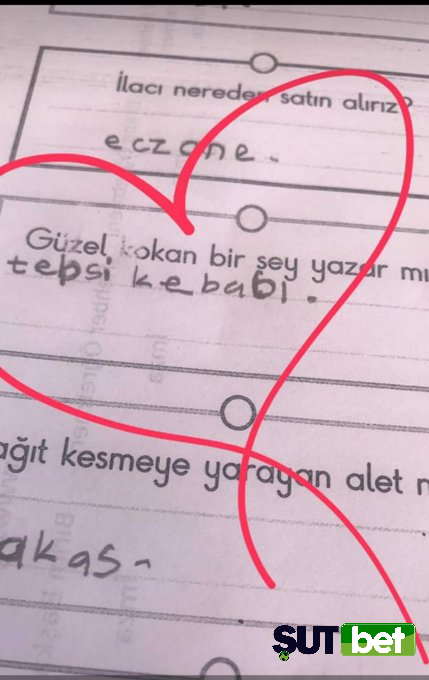 İlacı nereden satın alırız?
eczane.
Güzel kokan bir şey yazar mı
tepsi kebabi.
ağıt kesmeye yarayan alet n
akas.
ŞUTbet